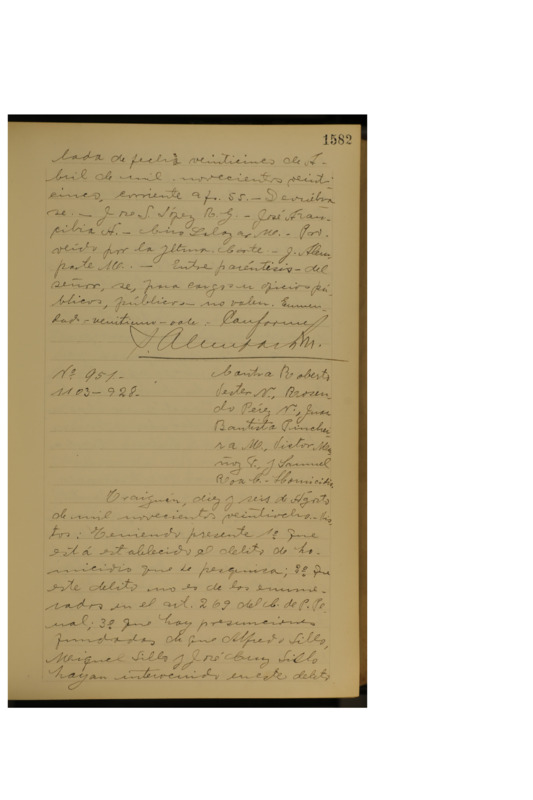 1582
lada de fecha veinticinco de A-
bril de mil novecientos veinti-
cinco, corriente a fs. 55. - Devuélva
se. - José S. López R. G. - José Aran-
cibia A. - Ciro Salazar M. - Pro-
veído por la Iltma. Corte. - J. Alem
parte M. - Entre paréntesis - del
señor, se, para cargos u oficios pú-
blicos, públicos - no valen. Enmen-
dado - veintiuno - vale - Conforme
J. Alemparte M.
Nº 951.- Contra Roberto
1103-928. Jester N., Rosen-
do Pérez N., Juan
Bautista Pinchei-
ra M., Victor Mu
ñoz F. y Samuel
Roa C. - Homicidio
Traiguén, diez y seis de Agosto
de mil novecientos veintiocho. - Vis-
tos: Teniendo presente 1º Que
está establecido el delito de ho-
micidio que se pesquisa; 2º Que
este delito no es de los enume-
rados en el art. 269 del C. de P. Pe-
nal; 3º Que hay presunciones
fundadas de que Alfredo Sills,
Meiquel Sills y José Cruz Sills
hayan intervenido en este delito